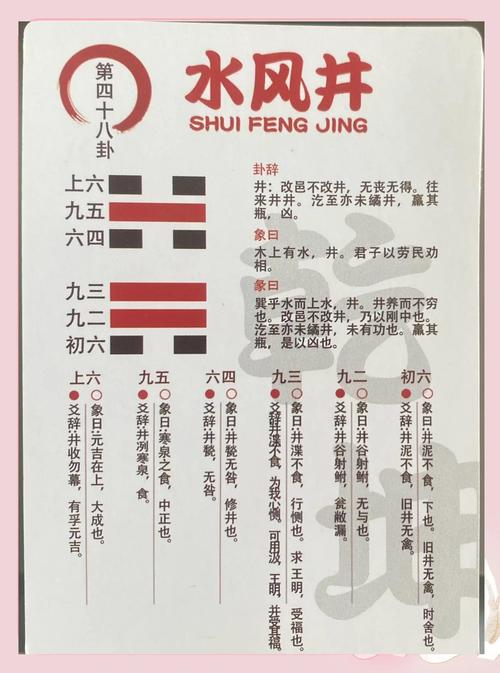 第四十八卦
水风井
SHUI FENG JING
上六
九五
六四
九三
九二
初六
卦辞
井：改邑不改井，无丧无得。往
来井井。汔至亦未繘井，羸其
瓶，凶。
象曰
木上有水，井。君子以劳民劝
相。
彖曰
巽乎水而上水，井。井养而不穷
也。改邑不改井，乃以刚中也。
汔至亦未繘井，未有功也。羸其
瓶，是以凶也。
乾
坤
上六
象曰:元吉在上，大成也。
爻辞:井收勿幕，有孚元吉。
九五
象曰:寒泉之食，中正也。
爻辞:井冽寒泉，食。
六四
象曰:井甃无咎，修井也。
爻辞:井甃，无咎。
九三
象曰:井渫不食，行恻也。求王明，受福也。
爻辞:井渫不食，为我心恻。可用汲，王明，并受其福。
九二
象曰:井谷射鲋，无与也。
爻辞:井谷射鲋，瓮敝漏。
初六
象曰:井泥不食，下也。旧井无禽，时舍也。
爻辞:井泥不食，旧井无禽。